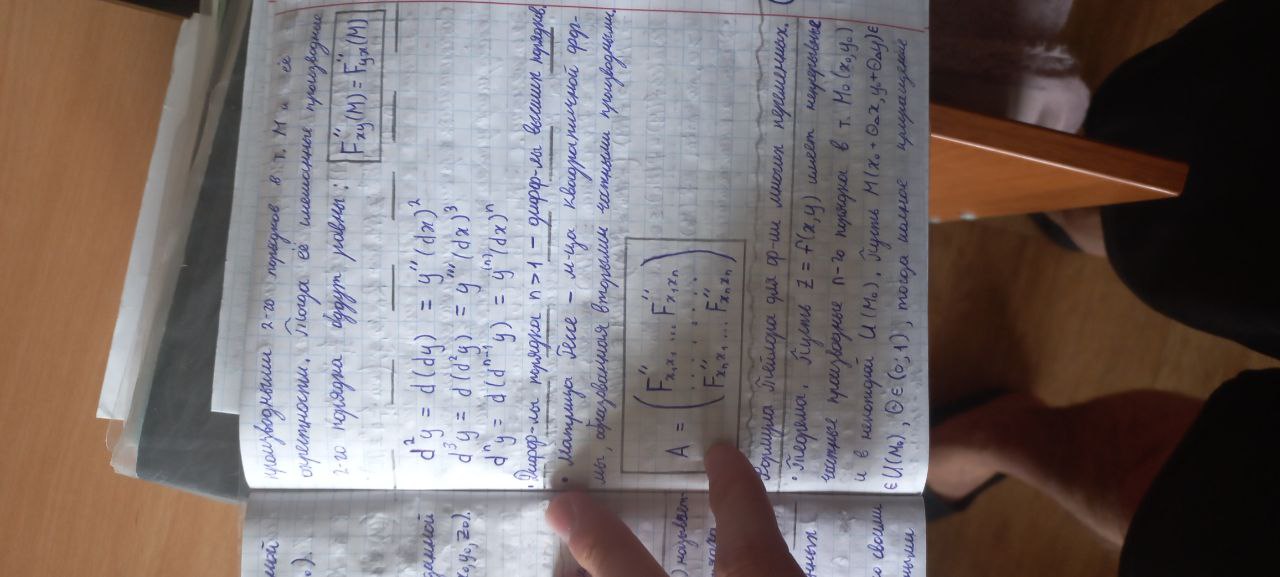 производными 2-го порядков в т. M и её
окрестности. Тогда её смешанные производные
2-го порядка будут равны: F''xy(M) = F''yx(M)
d²y = d(dy) = y''(dx)²
d³y = d(d²y) = y'''(dx)³
dⁿy = d(dⁿ⁻¹y) = y⁽ⁿ⁾(dx)ⁿ
Дифф-лы порядка n>1 – дифф-лы высших порядков.
• Матрица Гессе – м-ца квадратичной фор-
мы, образованная вторыми частными производными.
A = ( F''x₁x₁ ... F''x₁xₙ
. . . . . .
F''xₙx₁ ... F''xₙxₙ )
Формула Тейлора для ф-ии многих переменных.
• Теорема. Пусть z = f(x,y) имеет непрерывные
частные производные n-го порядка в т. M₀(x₀y₀)
и в некоторой U(M₀). Пусть M(x₀+θΔx, y₀+θΔy)∈
∈U(M₀), θ∈(0;1), тогда полное приращение
мой
данной
x₀,y₀,z₀).
) называет-
нных
о своими
ными